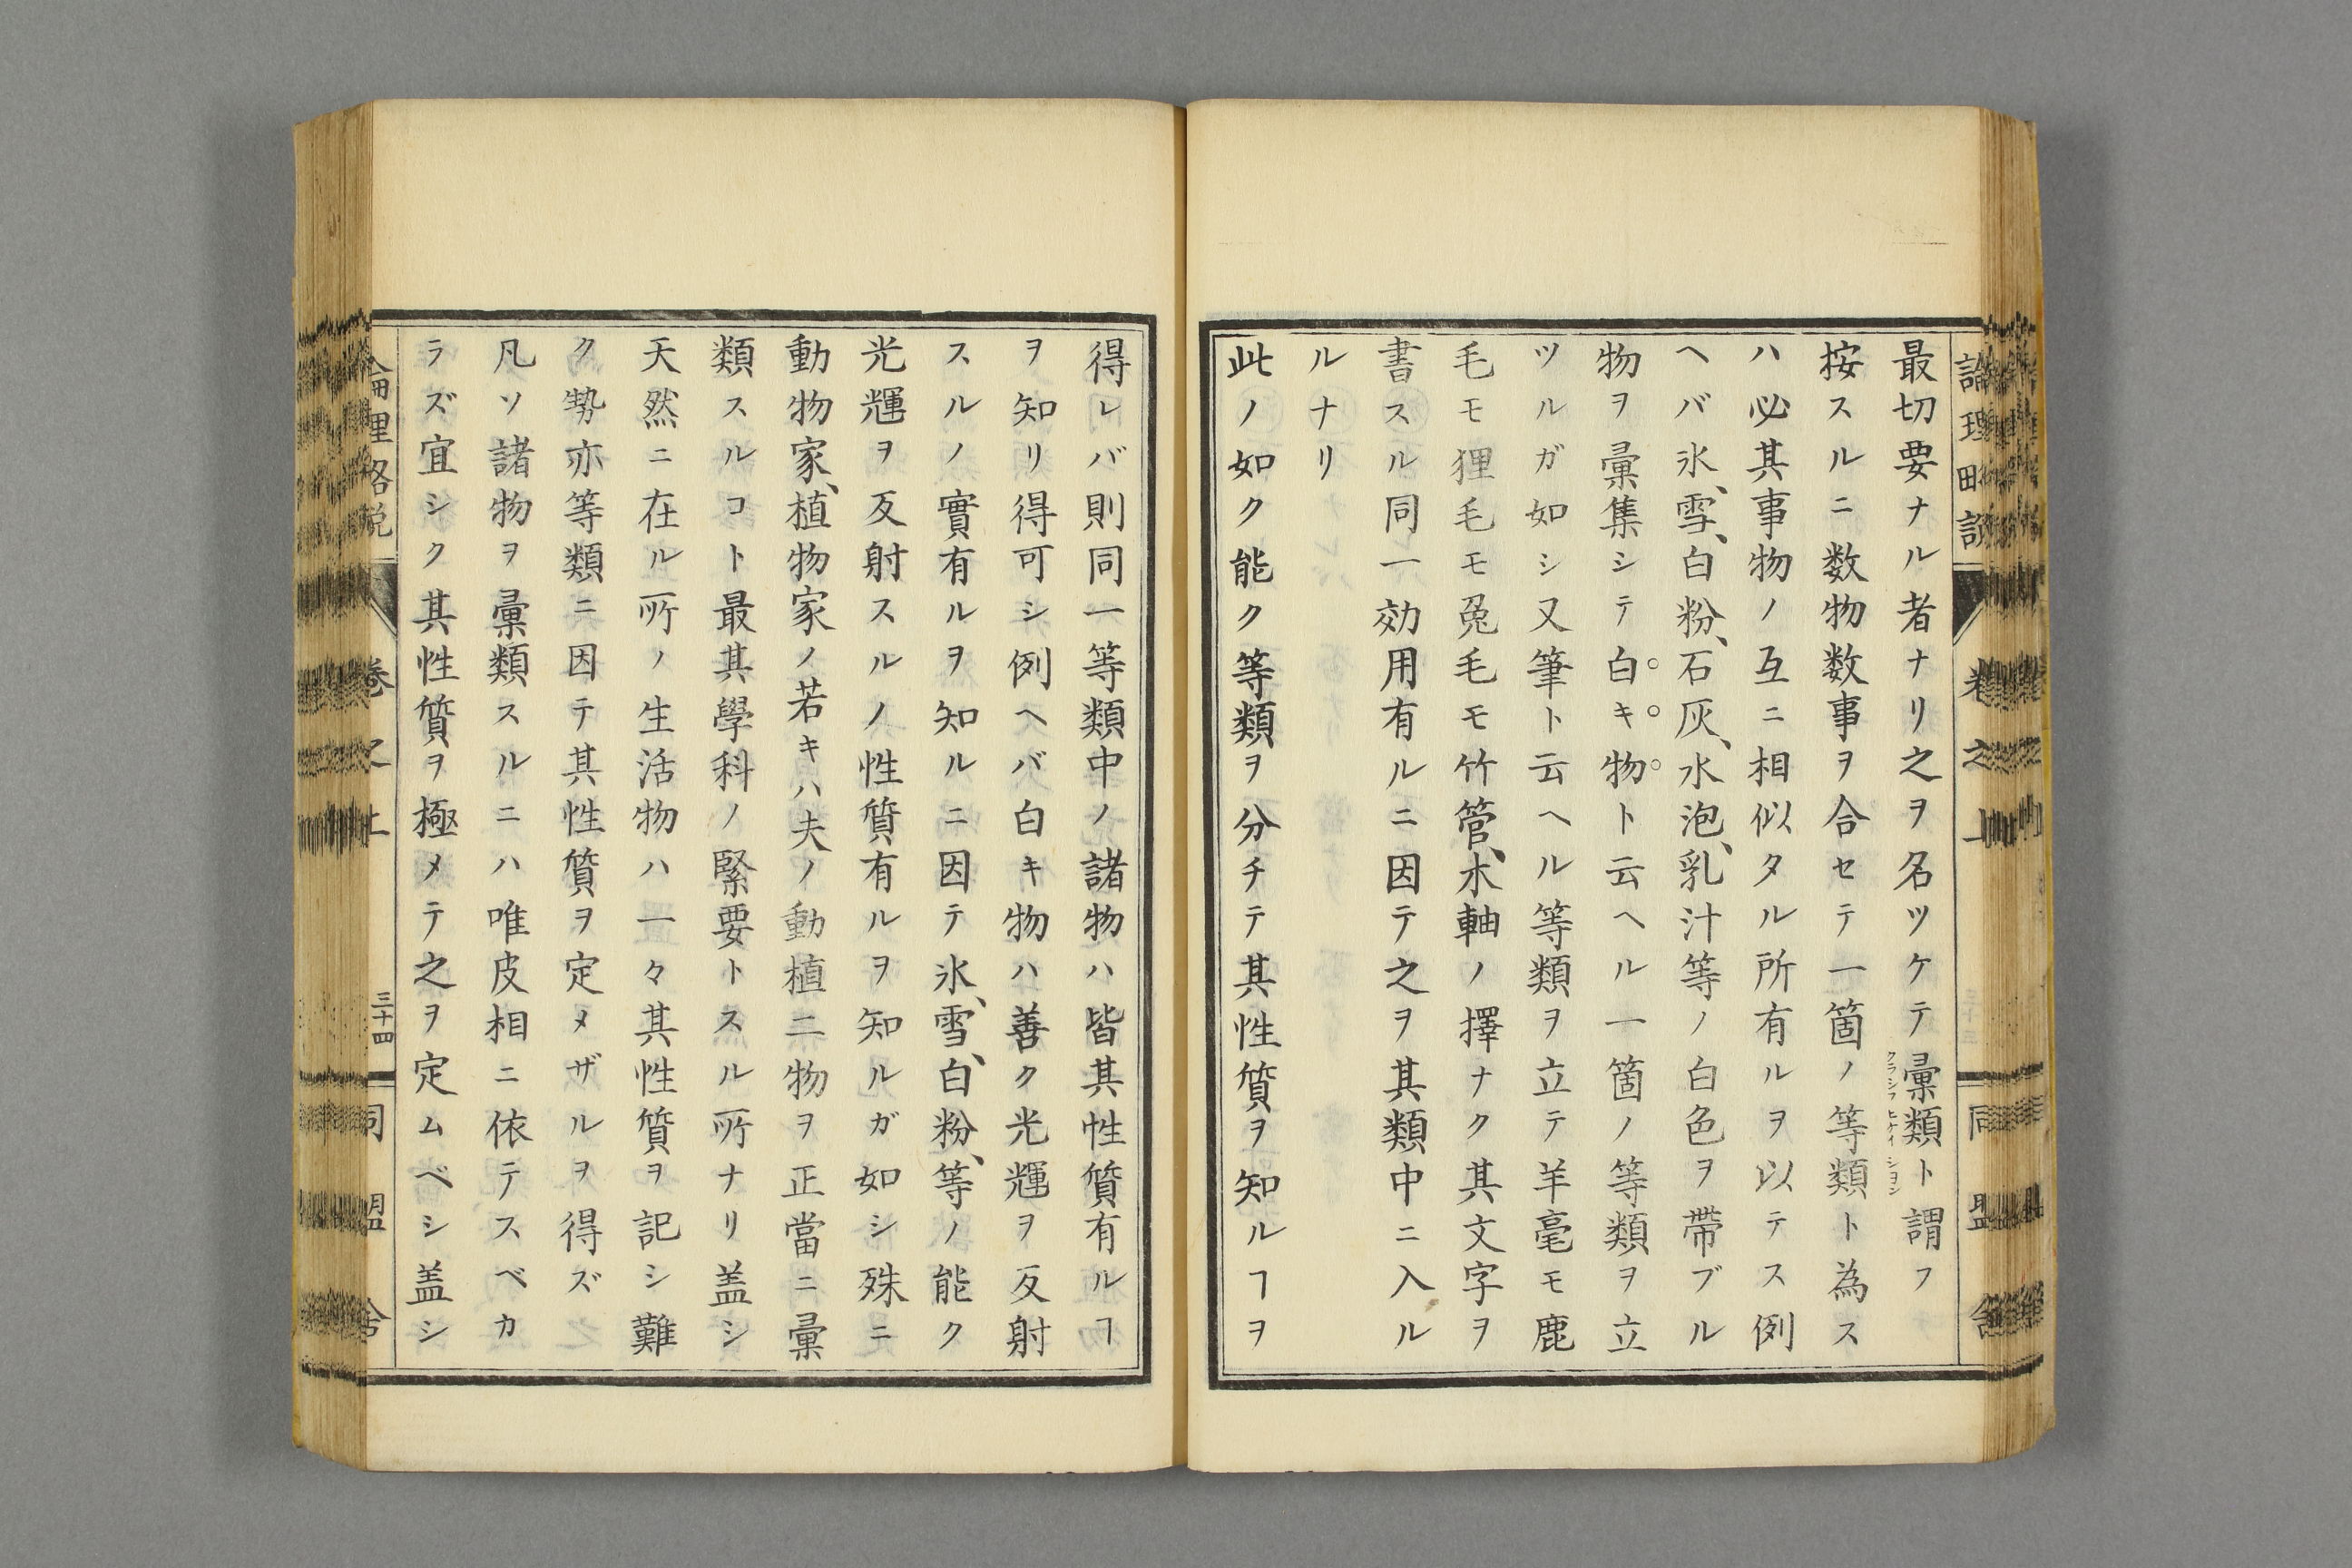 最切要ナル者ナリ之ヲ名ツケテ彙類ト謂フ
クラシフヒケイシヨン
按スルニ数物数事ヲ合セテ一箇ノ等類ト為ス
ハ必其事物ノ互ニ相似タル所有ルヲ以テス例
ヘバ氷、雪、白粉、石灰、水泡、乳汁等ノ白色ヲ帶ブル
物ヲ彙集シテ白キ物ト云ヘル一箇ノ等類ヲ立
ツルガ如シ又筆ト云ヘル等類ヲ立テ羊毫モ鹿
毛モ狸毛モ兔毛モ竹管、木軸ノ擇ナク其文字ヲ
書スル同一効用有ルニ因テ之ヲ其類中ニ入ル
ルナリ
此ノ如ク能ク等類ヲ分チテ其性質ヲ知ルヿヲ
得レバ則同一等類中ノ諸物ハ皆其性質有ルヿ
ヲ知リ得可シ例ヘバ白キ物ハ善ク光輝ヲ反射
スルノ實有ルヲ知ルニ因テ氷、雪、白粉、等ノ能ク
光輝ヲ反射スルノ性質有ルヲ知ルガ如シ殊ニ
動物家、植物家ノ若キハ夫ノ動植二物ヲ正當ニ彙
類スルコト最其學科ノ緊要トスル所ナリ盖シ
天然ニ在ル所ノ生活物ハ一々其性質ヲ記シ難
ク勢亦等類ニ因テ其性質ヲ定メザルヲ得ズ
凡ソ諸物ヲ彙類スルニハ唯皮相ニ依テスベカ
ラズ宜シク其性質ヲ極メテ之ヲ定ムベシ盖シ
論理略説
卷之上
三十四
同盟舎